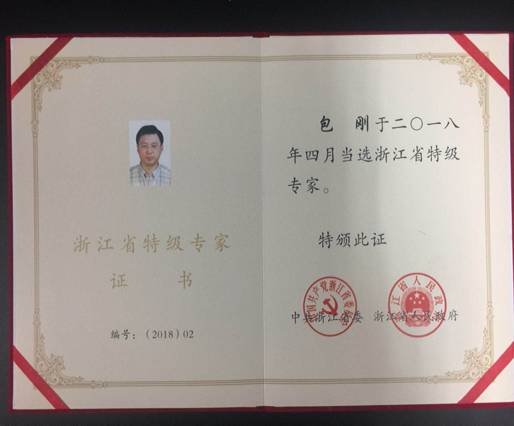 浙江省特级专家
证 书
编号：（2018）02
包 刚于二〇一八
年四月当选浙江省特级
专家。
特颁此证
中共浙江省委 浙江省人民政府